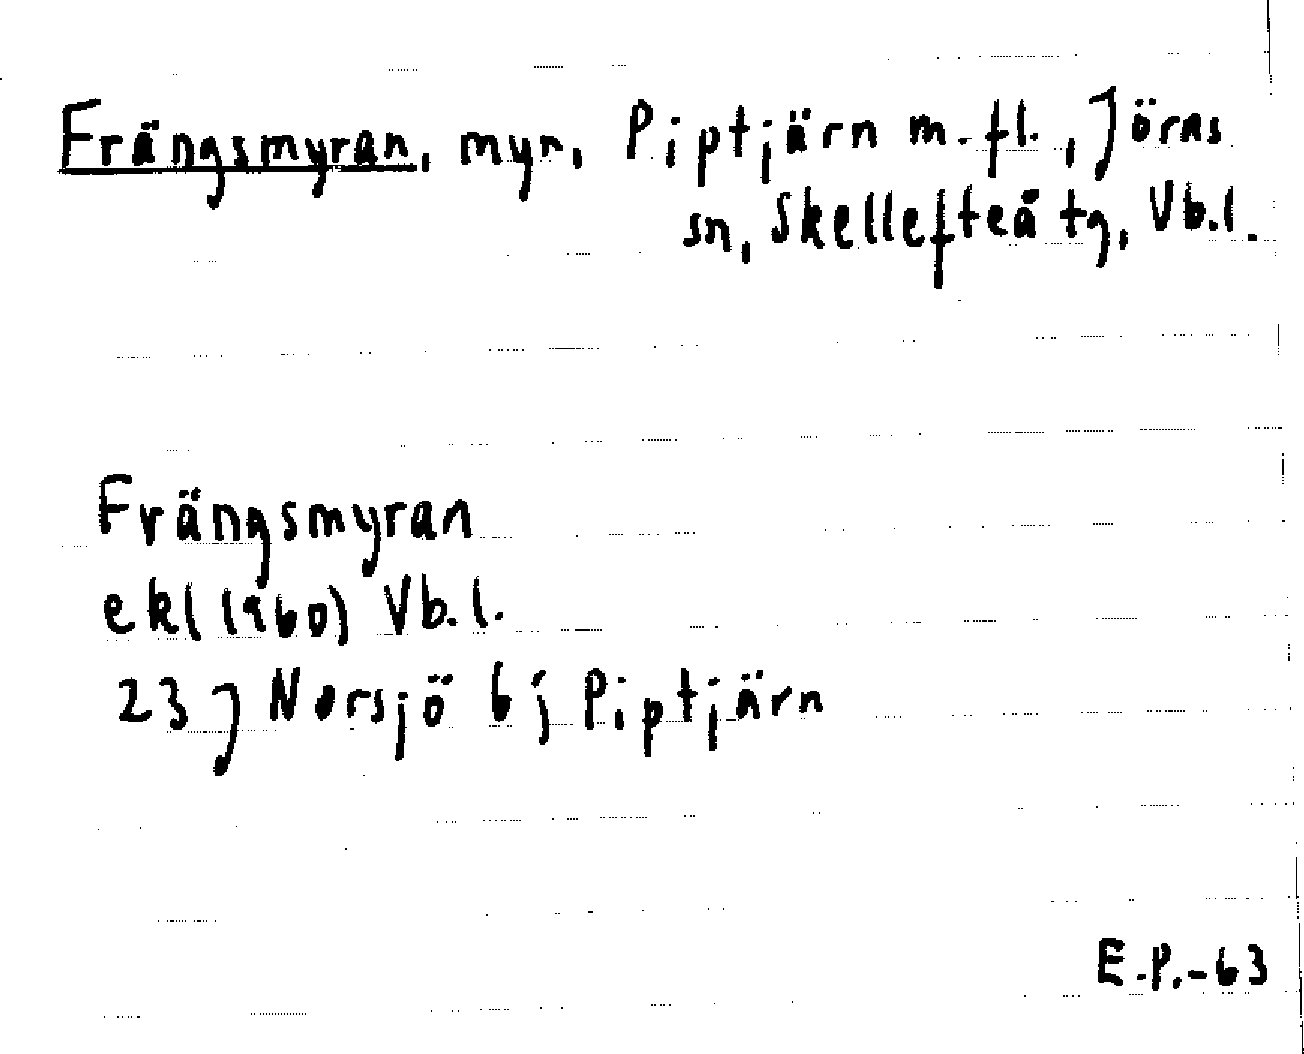 Frängsmyran, myr, Piptjärn m.fl., Jörns
sn, Skellefteå tg, Vb.l.
Frängsmyran
ekl (1960) Vb.l.
23 J Norsjö 6 j Piptjärn
E.P.-63